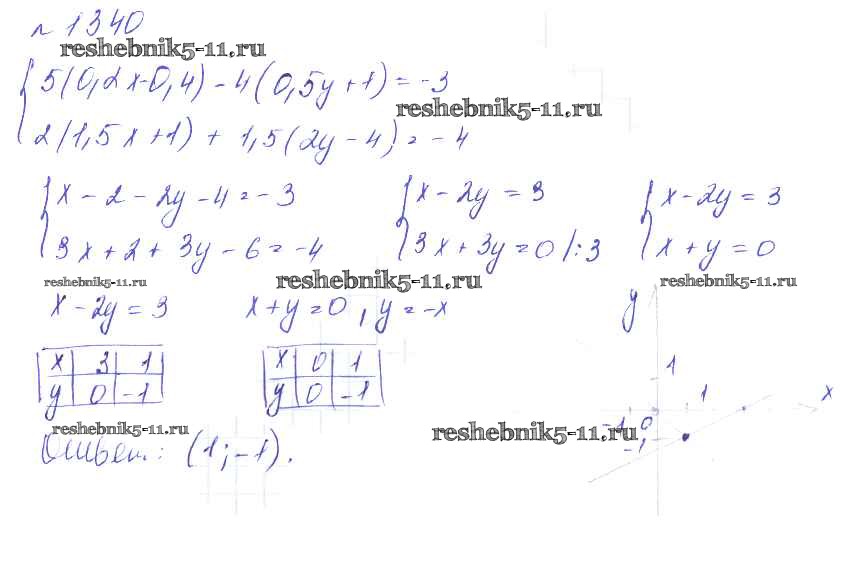 № 1340
reshebnik5-11.ru
5(0,2x-0,4) - 4(0,5y+1) = -3
reshebnik5-11.ru
2(1,5x+1) + 1,5(2y-4) = -4
x - 2 - 2y - 4 = -3 x - 2y = 3 x - 2y = 3
3x + 2 + 3y - 6 = -4 3x + 3y = 0 |:3 x + y = 0
reshebnik5-11.ru reshebnik5-11.ru reshebnik5-11.ru
x - 2y = 3 x + y = 0, y = -x y
x 3 1 x 0 1 1
y 0 -1 y 0 -1 1 x
-1 0
reshebnik5-11.ru reshebnik5-11.ru
Ответ: (1; -1). -1